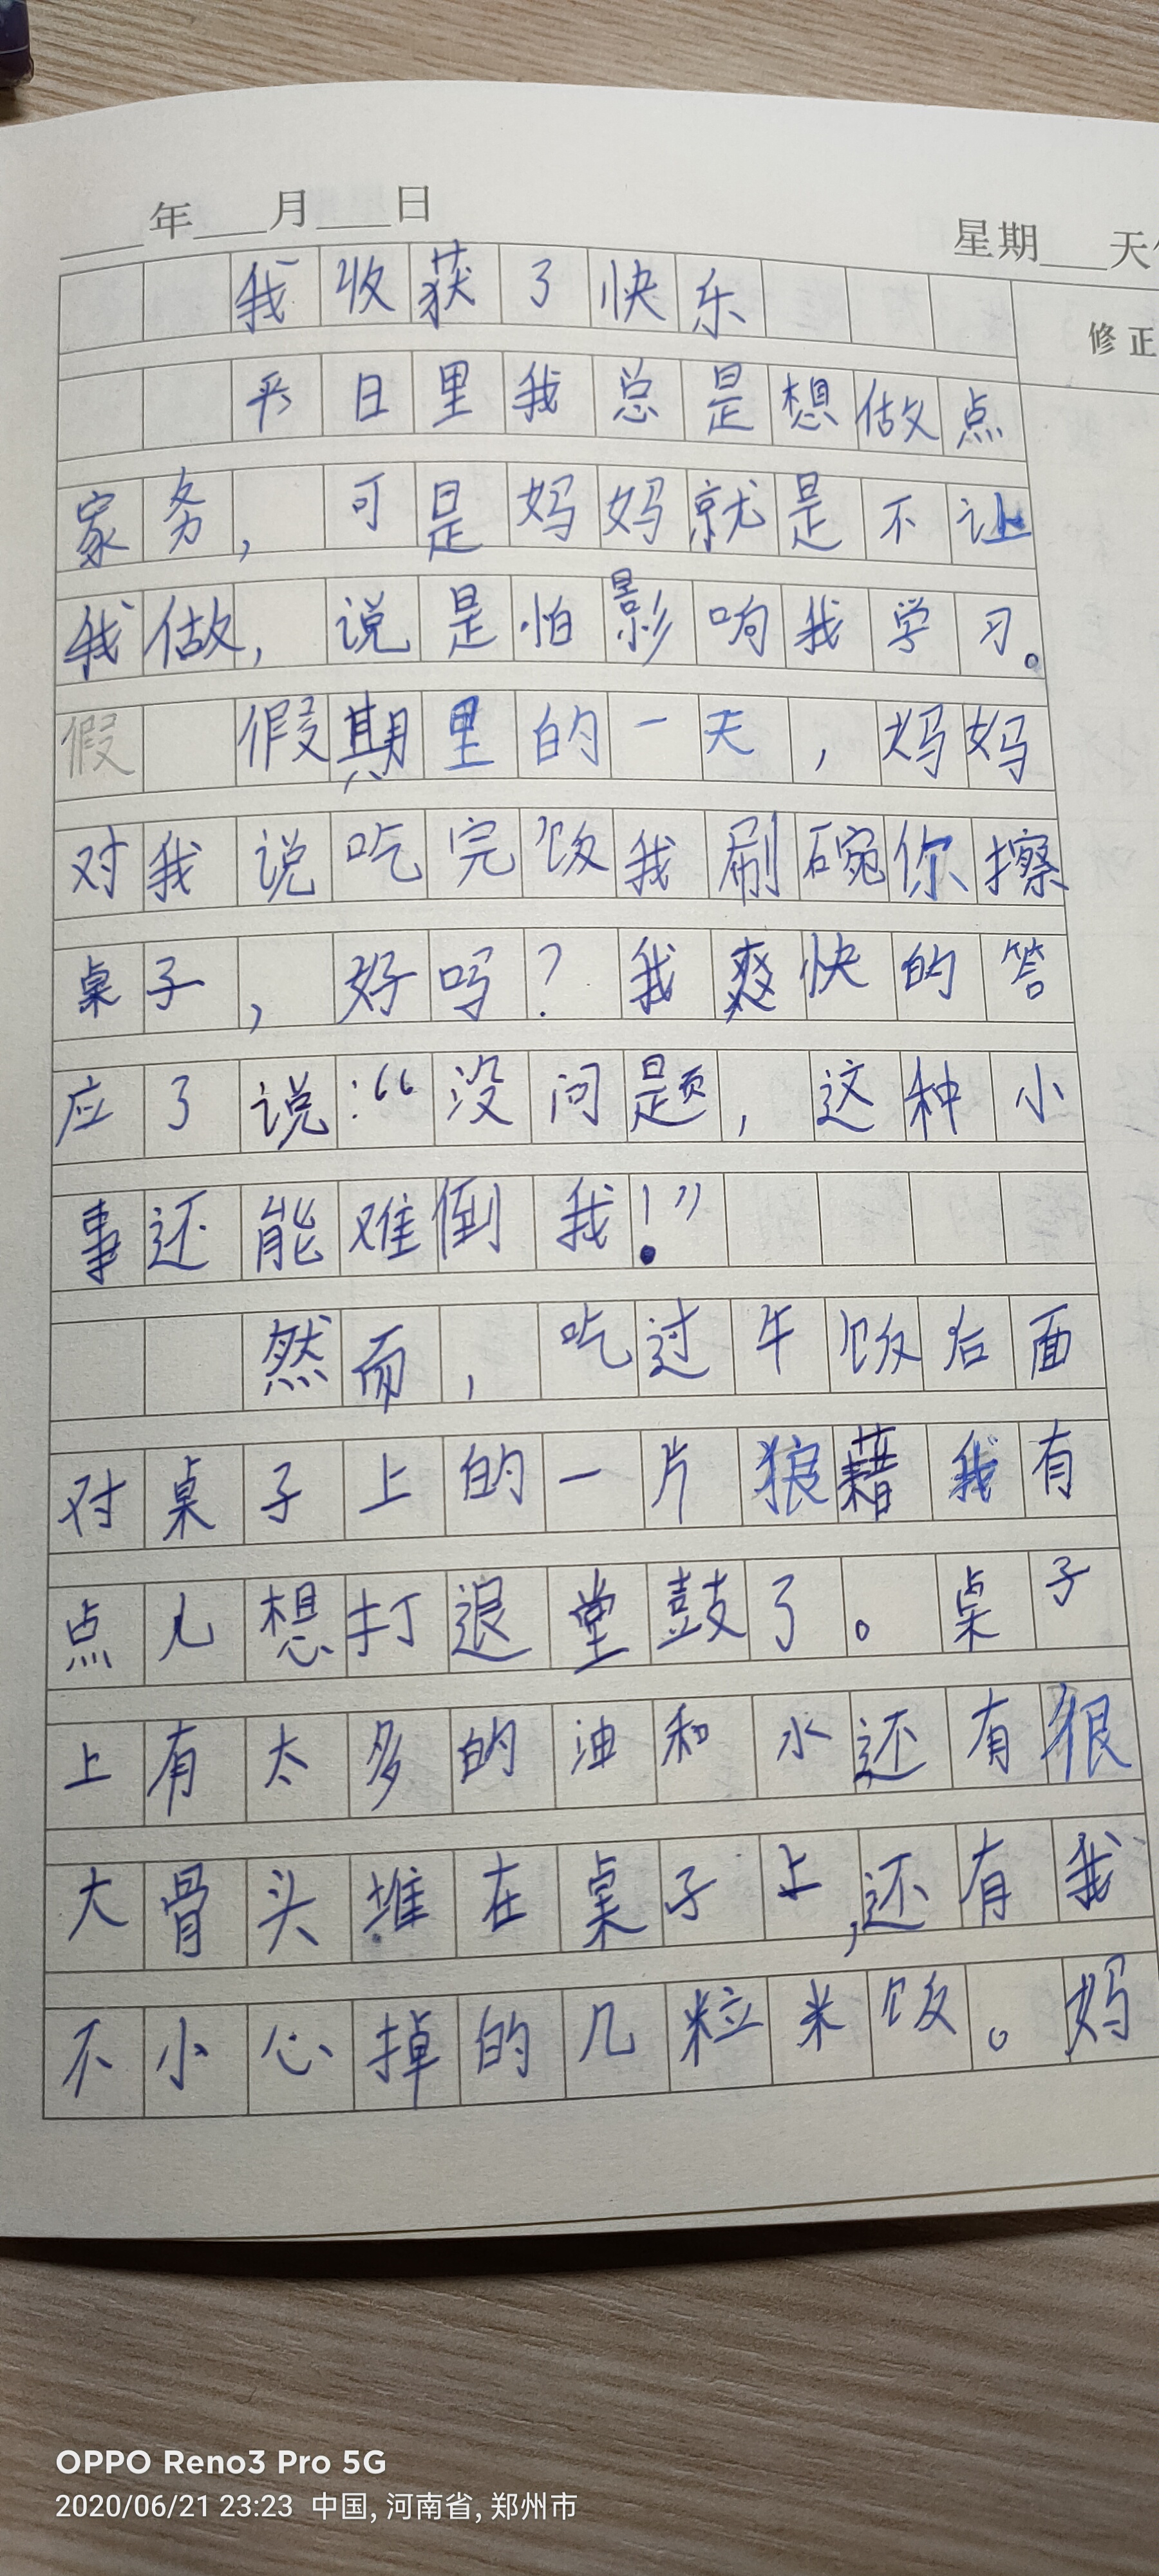 ___年___月___日
星期___天
我收获了快乐
修正
平日里我总是想做点
家务，可是妈妈就是不让
我做，说是怕影响我学习。
假 假期里的一天，妈妈
对我说吃完饭我刷碗你擦
桌子，好吗？我爽快的答
应了说：“没问题，这种小
事还能难倒我！”
然而，吃过午饭后面
对桌子上的一片狼藉我有
点儿想打退堂鼓了。桌子
上有太多的油和水还有很
大骨头堆在桌子上，还有我
不小心掉的几粒米饭。妈
OPPO Reno3 Pro 5G
2020/06/21 23:23 中国, 河南省, 郑州市